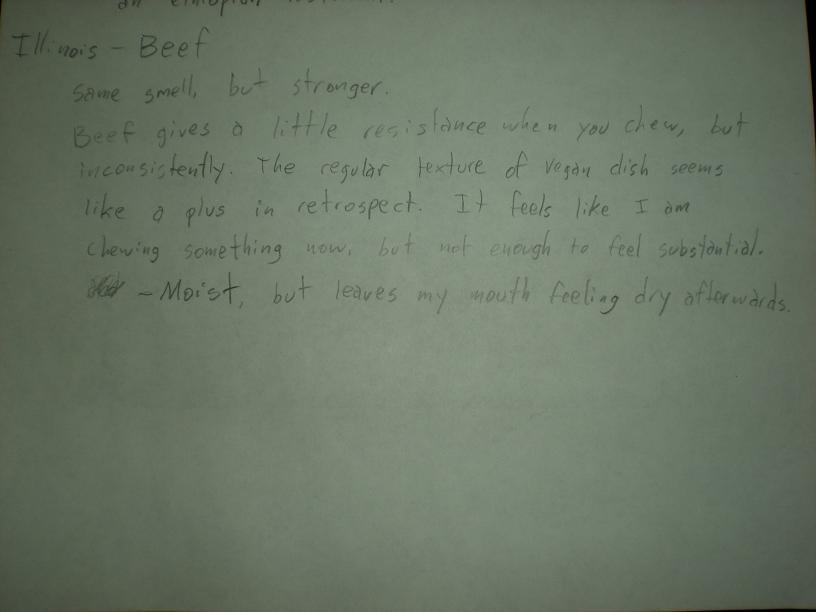 an ethiopian restaurant.
Illinois - Beef
Same smell, but stronger.
Beef gives a little resistance when you chew, but
inconsistently. The regular texture of vegan dish seems
like a plus in retrospect. It feels like I am
chewing something now, but not enough to feel substantial.
- Moist, but leaves my mouth feeling dry afterwards.